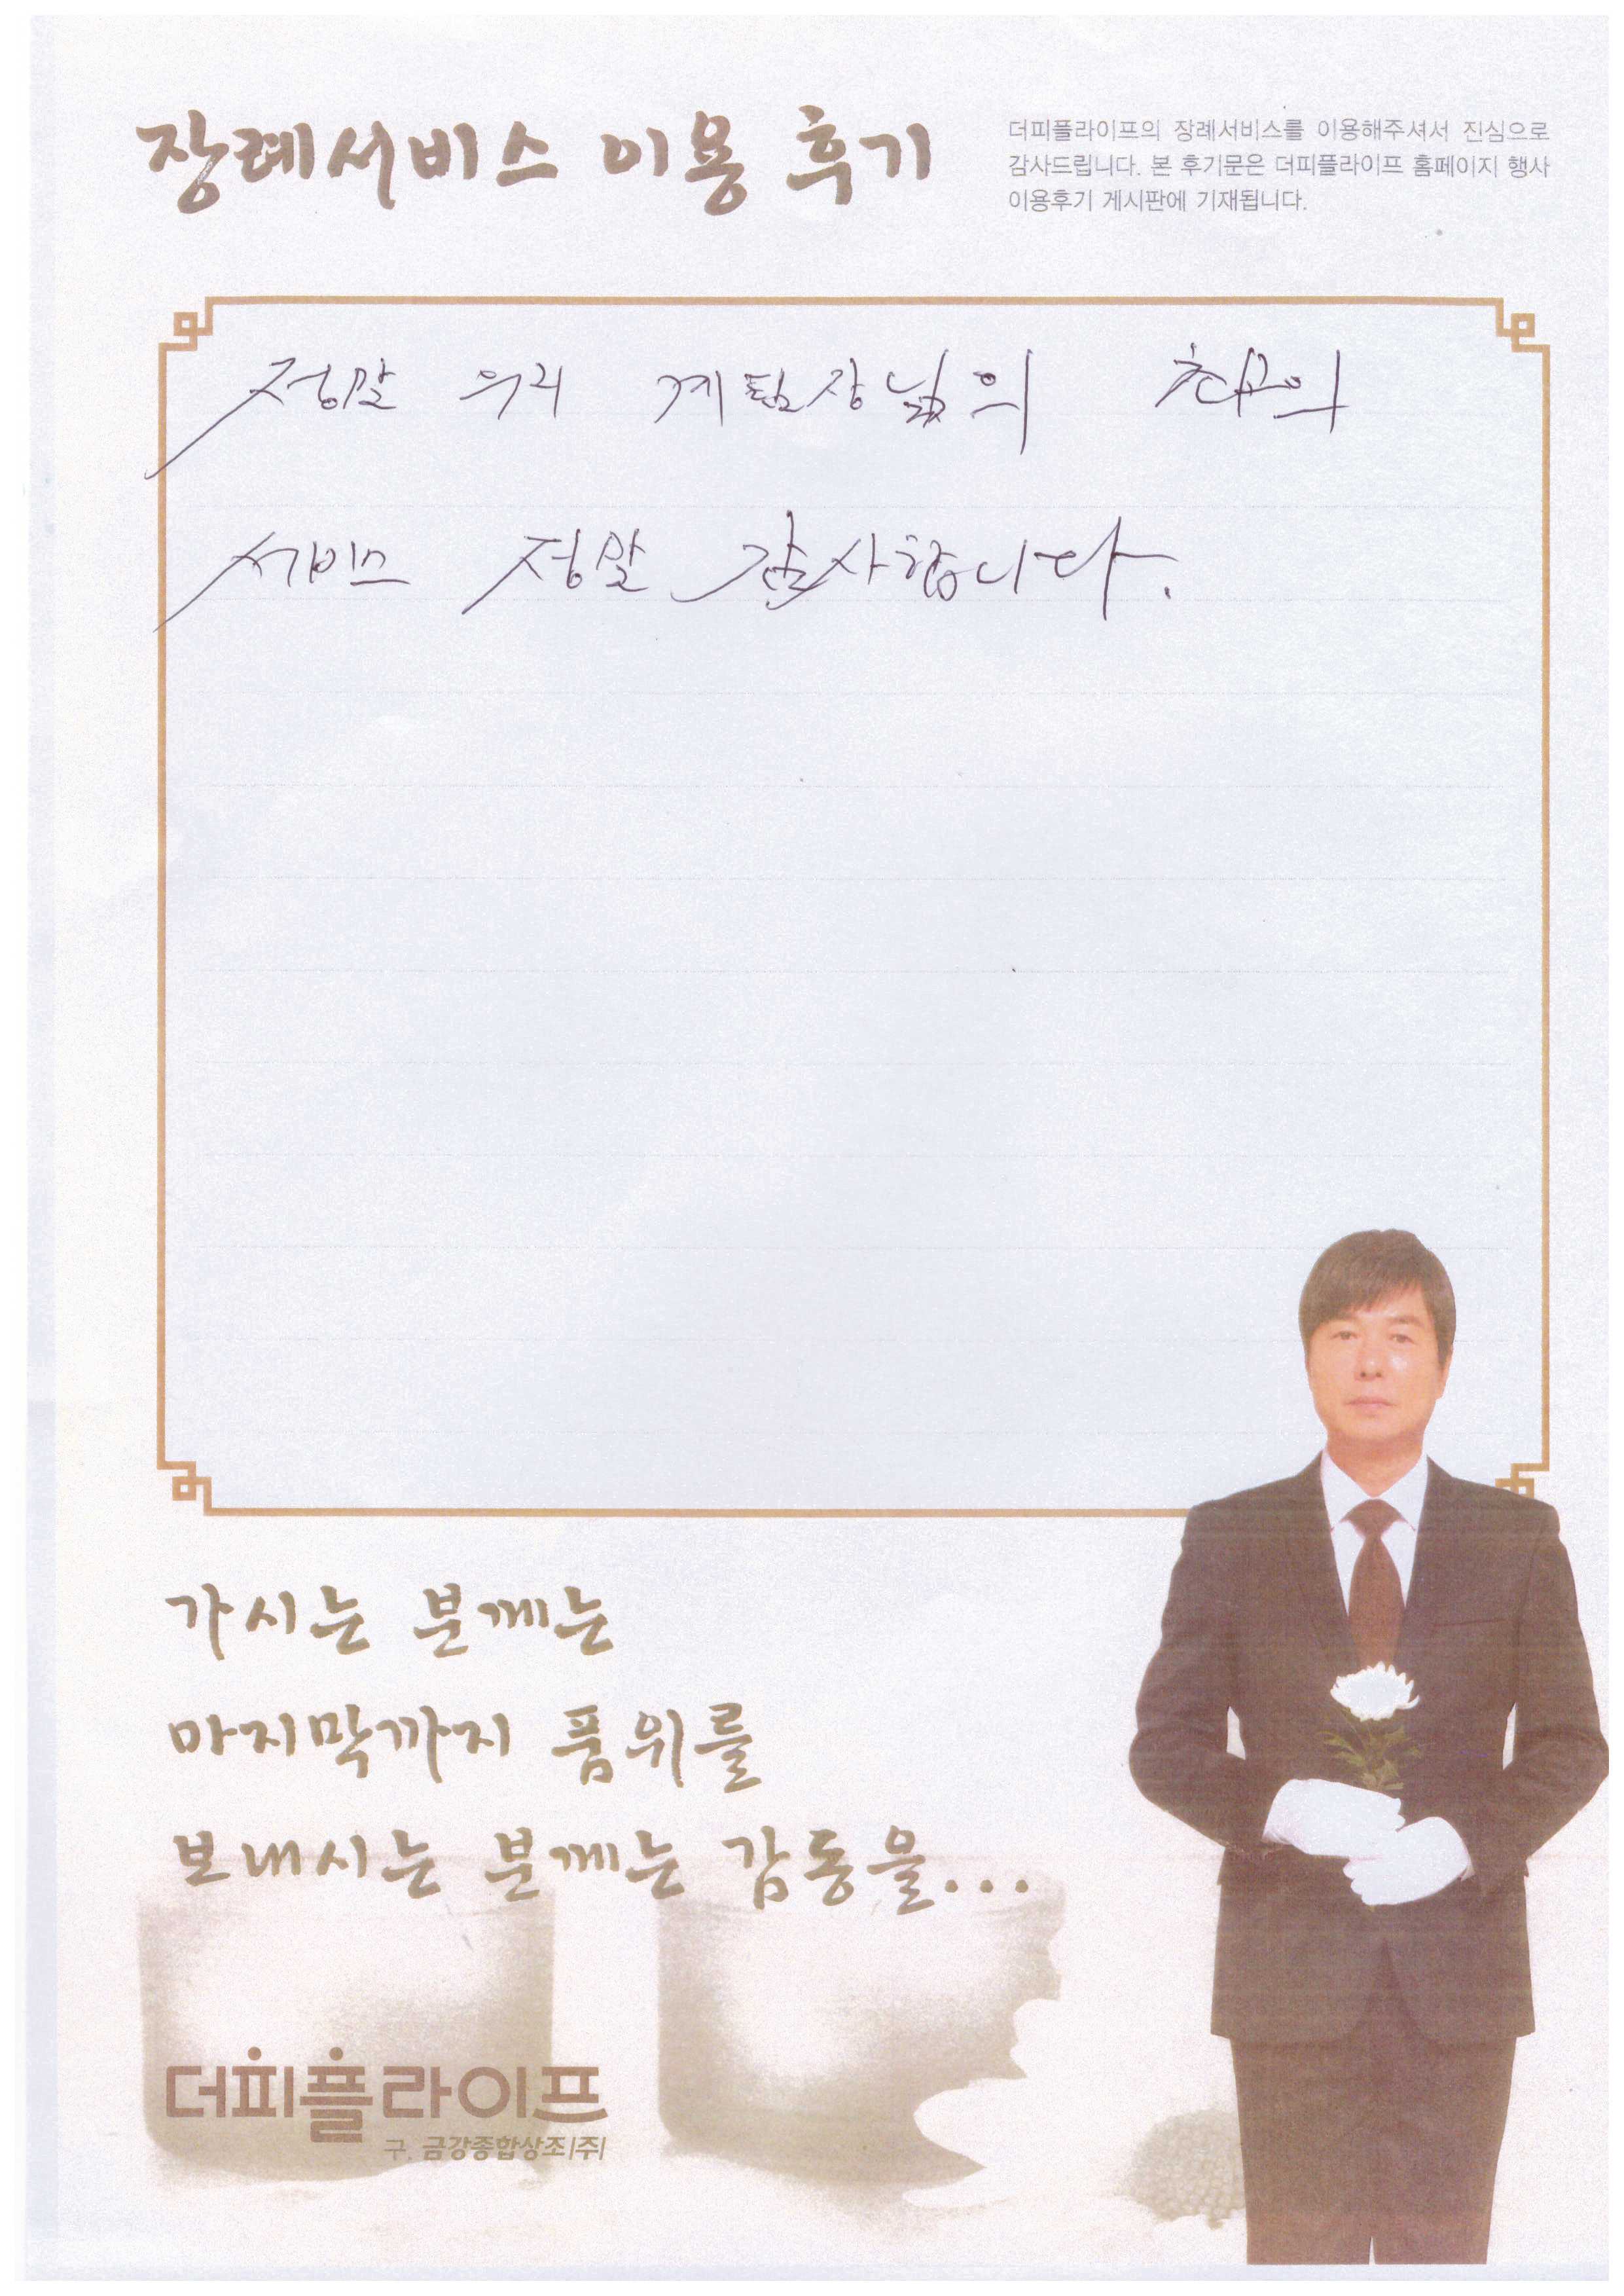 장례서비스 이용 후기
더피플라이프의 장례서비스를 이용해주셔서 진심으로
감사드립니다. 본 후기문은 더피플라이프 홈페이지 행사
이용후기 게시판에 기재됩니다.
정말 우리 계팀장님의 최고의
서비스 정말 감사합니다.
가시는 분께는
마지막까지 품위를
보내시는 분께는 감동을...
더피플라이프
구. 금강종합상조|주|